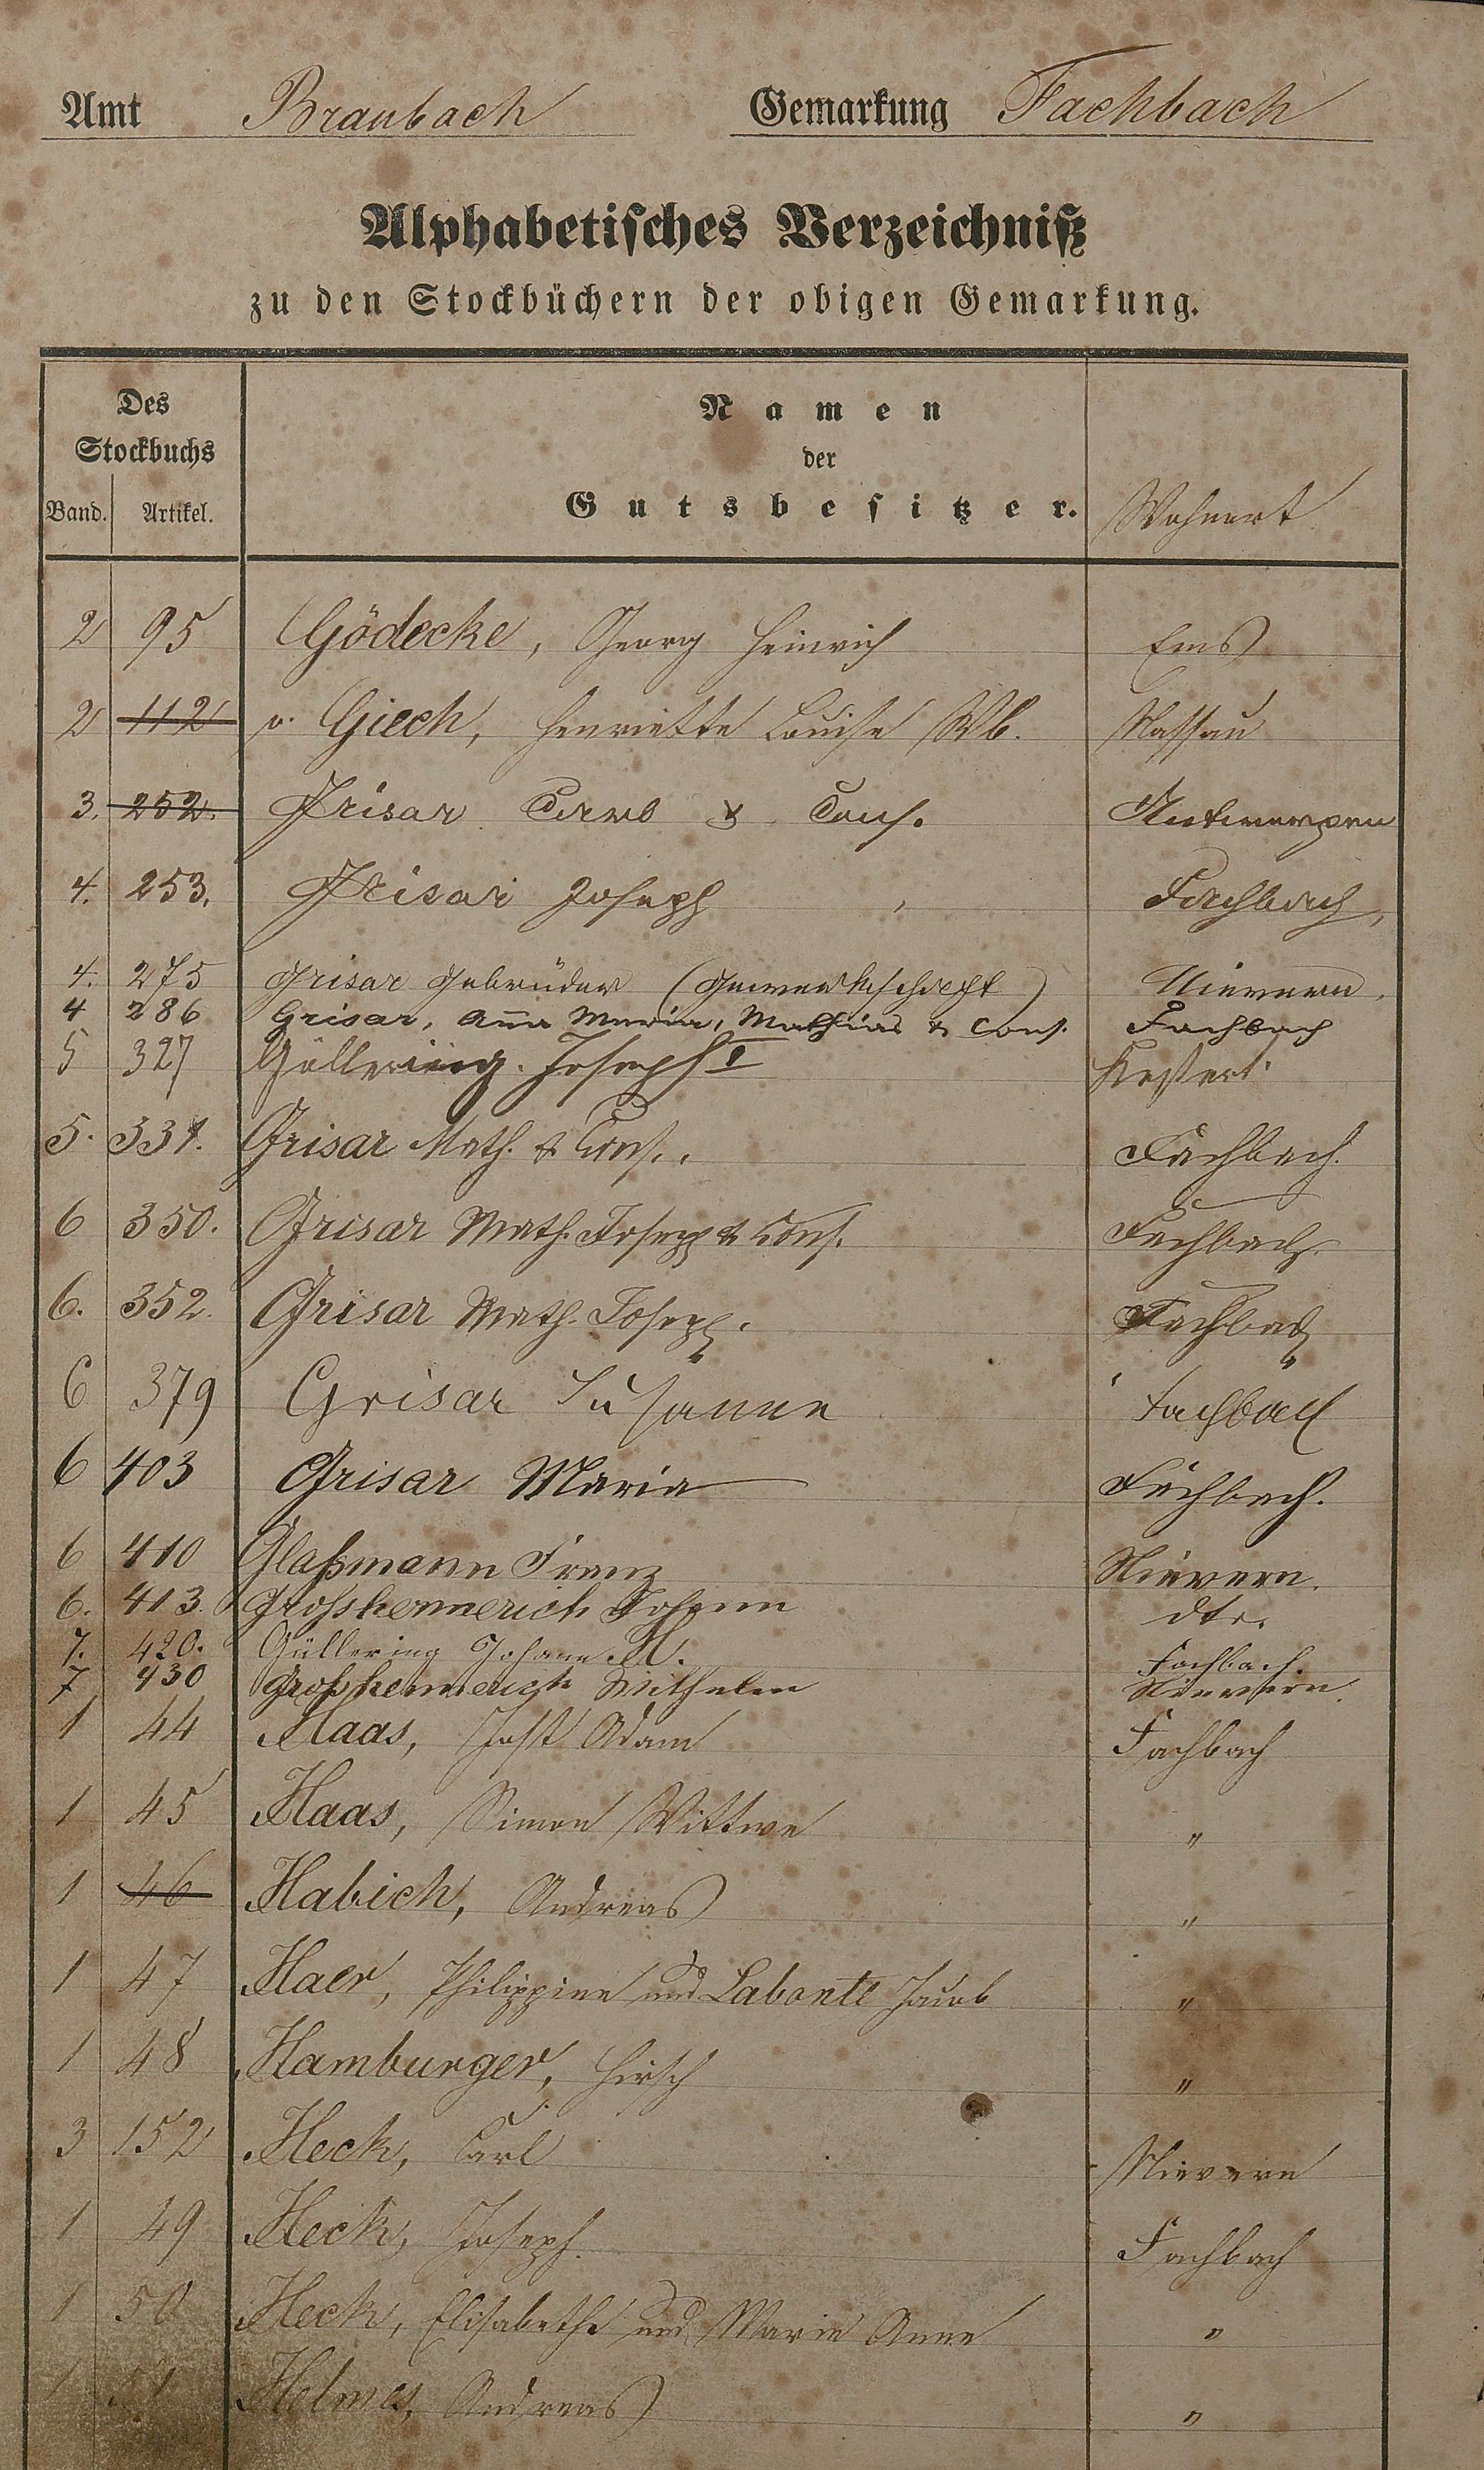 Amt Braubach Gemarkung Fachbach
Alphabetisches Verzeichniß
zu den Stockbüchern der obigen Gemarkung.
Des Stockbuchs
Band. Artikel.
Namen
der
Gutsbesitzer.
Wohnort
2 95 Gödecke, Georg Heinrich Ems
2 112 v. Giech, Henriette Louise Wb. Nassau
3. 252. Grisar & Cons. Antwerpen
4. 253. Grisar Joseph Fachbach,
4. 275 Grisar Gebrüder (Gewerkschaft) Nievern.
4 286 Grisar, Anna Maria, Mathias & Cons. Fachbach
5 327 Güllering. Joseph I Kestert
5. 331. Grisar Math. & Cons. Fachbach.
6 350. Grisar Math. Joseph & Cons. Fachbach.
6. 352. Grisar Math. Joseph. Fachbach
6 379 Grisar Susanne Fachbach
6 403 Grisar Maria Fachbach.
6 410 Glaßmann Franz Nievern.
6. 413. Grosshennerich Johann dto.
7. 420. Güllering Johann M. Fachbach.
7 430 Großhennerich Wilhelm Nievern.
1 44 Haas, Jost Adam Fachbach
1 45 Haas, Simon Wittwe "
1 46 Habich, Andreas "
1 47 Haer, Philippine und Labonte Jacob "
1 48 Hamburger, Hirsch "
3 152 Heck, Carl Nievern
1 49 Heck, Joseph. Fachbach
1 50 Heck, Elisabethe und Marie Anne "
1 51 Helmes, Andreas "